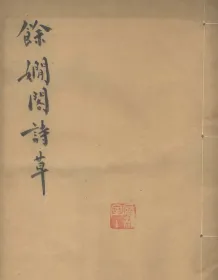 餘嫺閣詩草